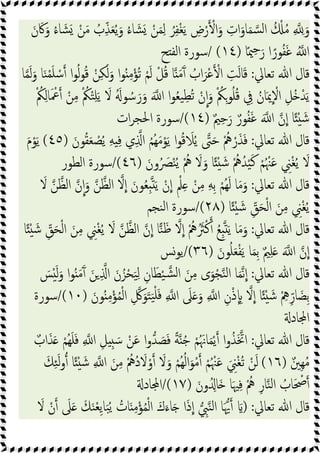 وَلِلَّهِ مُلْكُ السَّمَاوَاتِ وَالْأَرْضِ يَغْفِرُ لِمَنْ يَشَاءُ وَيُعَذِّبُ مَنْ يَشَاءُ وَكَانَ
اللَّهُ غَفُورًا رَّحِيمًا (١٤) /سورة الفتح
قال الله تعالي: قَالَتِ الْأَعْرَابُ آمَنَّا قُلْ لَمْ تُؤْمِنُوا وَلَكِنْ قُولُوا أَسْلَمْنَا وَلَمَّا
يَدْخُلِ الْإِيمَانُ فِي قُلُوبِكُمْ وَإِنْ تُطِيعُوا اللَّهَ وَرَسُولَهُ لَا يَلِتْكُمْ مِنْ أَعْمَالِكُمْ
شَيْئًا إِنَّ اللَّهَ غَفُورٌ رَحِيمٌ (١٤)/سورة الحجرات
قال الله تعالي: فَذَرْهُمْ حَتَّى يُلَاقُوا يَوْمَهُمُ الَّذِي فِيهِ يُصْعَقُونَ (٤٥) يَوْمَ
لَا يُغْنِي عَنْهُمْ كَيْدُهُمْ شَيْئًا وَلَا هُمْ يُنْصَرُونَ (٤٦)/سورة الطور
قال الله تعالي: وَمَا لَهُمْ بِهِ مِنْ عِلْمٍ إِنْ يَتَّبِعُونَ إِلَّا الظَّنَّ وَإِنَّ الظَّنَّ لَا
يُغْنِي مِنَ الْحَقِّ شَيْئًا (٢٨)/سورة النجم
قال الله تعالي: وَمَا يَتَّبِعُ أَكْثَرُهُمْ إِلَّا ظَنًّا إِنَّ الظَّنَّ لَا يُغْنِي مِنَ الْحَقِّ شَيْئًا
إِنَّ اللَّهَ عَلِيمٌ بِمَا يَفْعَلُونَ (٣٦)/يونس
قال الله تعالي: إِنَّمَا النَّجْوَى مِنَ الشَّيْطَانِ لِيَحْزُنَ الَّذِينَ آمَنُوا وَلَيْسَ
بِضَارِّهِمْ شَيْئًا إِلَّا بِإِذْنِ اللَّهِ وَعَلَى اللَّهِ فَلْيَتَوَكَّلِ الْمُؤْمِنُونَ (١٠)/سورة
المجادلة
قال الله تعالي: اتَّخَذُوا أَيْمَانَهُمْ جُنَّةً فَصَدُّوا عَنْ سَبِيلِ اللَّهِ فَلَهُمْ عَذَابٌ
مُهِينٌ (١٦) لَنْ تُغْنِيَ عَنْهُمْ أَمْوَالُهُمْ وَلَا أَوْلَادُهُمْ مِنَ اللَّهِ شَيْئًا أُولَئِكَ
أَصْحَابُ النَّارِ هُمْ فِيهَا خَالِدُونَ (١٧)/المجادلة
قال الله تعالي: (يَا أَيُّهَا النَّبِيُّ إِذَا جَاءَكَ الْمُؤْمِنَاتُ يُبَايِعْنَكَ عَلَى أَنْ لَا